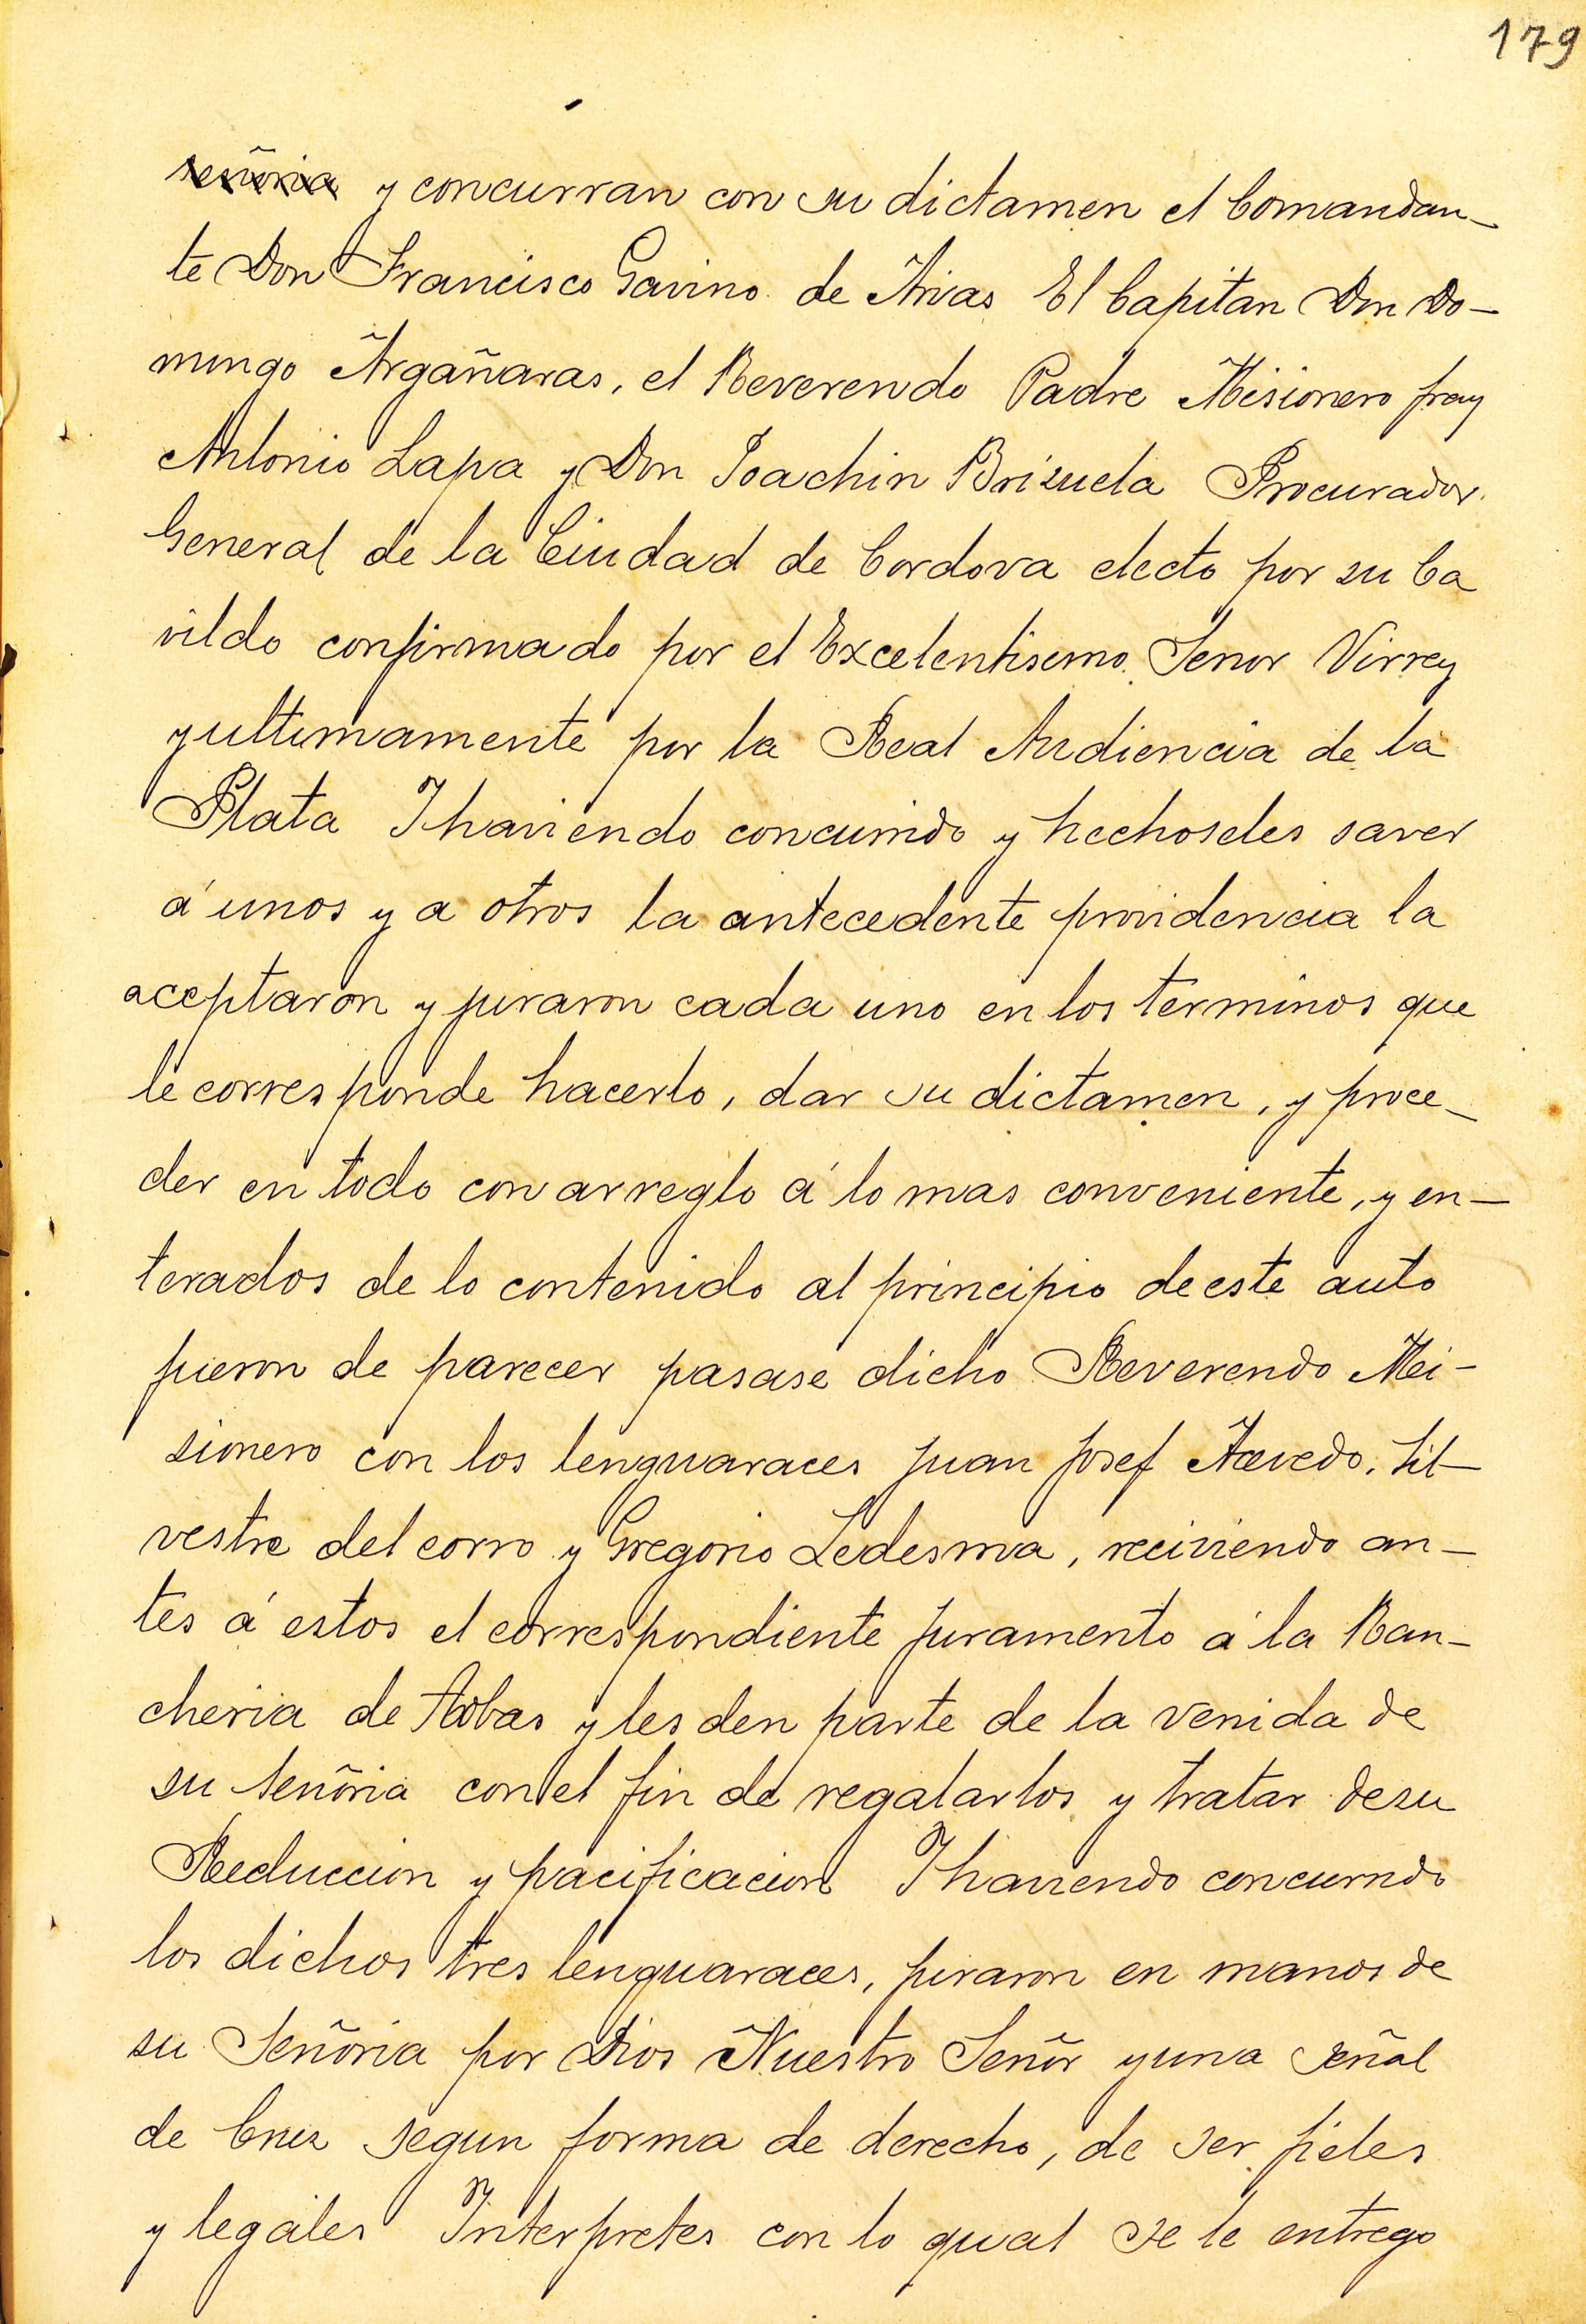 179
señoria y concurran con su dictamen el Comandan-
te Don Francisco Gavino de Arias El Capitan Don Do-
mingo Argañaras, el Reverendo Padre Misionero fray
Antonio Lapa y Don Joachin Brizuela Procurador
General de la Ciudad de Cordova electo por su Ca
vildo confirmado por el Excelentisimo Senor Virrey
y ultimamente por la Real Audiencia de la
Plata I haviendo concurrido y hechoseles saver
á unos y a otros la antecedente providencia la
aceptaron y juraron cada uno en los terminos que
le corresponde hacerlo, dar su dictamen, y proce-
der en todo con arreglo á lo mas conveniente, y en-
terados de lo contenido al principio de este auto
fueron de parecer pasase dicho Reverendo Mi-
sionero con los lenguaraces Juan Josef Acevedo, Sil-
vestre del corro y Gregorio Ledesma, reciviendo an-
tes á estos el correspondiente juramento á la Ran-
cheria de Tobas y les den parte de la venida de
su señoria con el fin de regalarlos y tratar de su
Reduccion y pacificacion I haviendo concurrido
los dichos tres lenguaraces, juraron en manos de
su Señoria por Dios Nuestro Señor y una señal
de Cruz segun forma de derecho, de ser fieles
y legales Interpretes con lo qual se le entrego